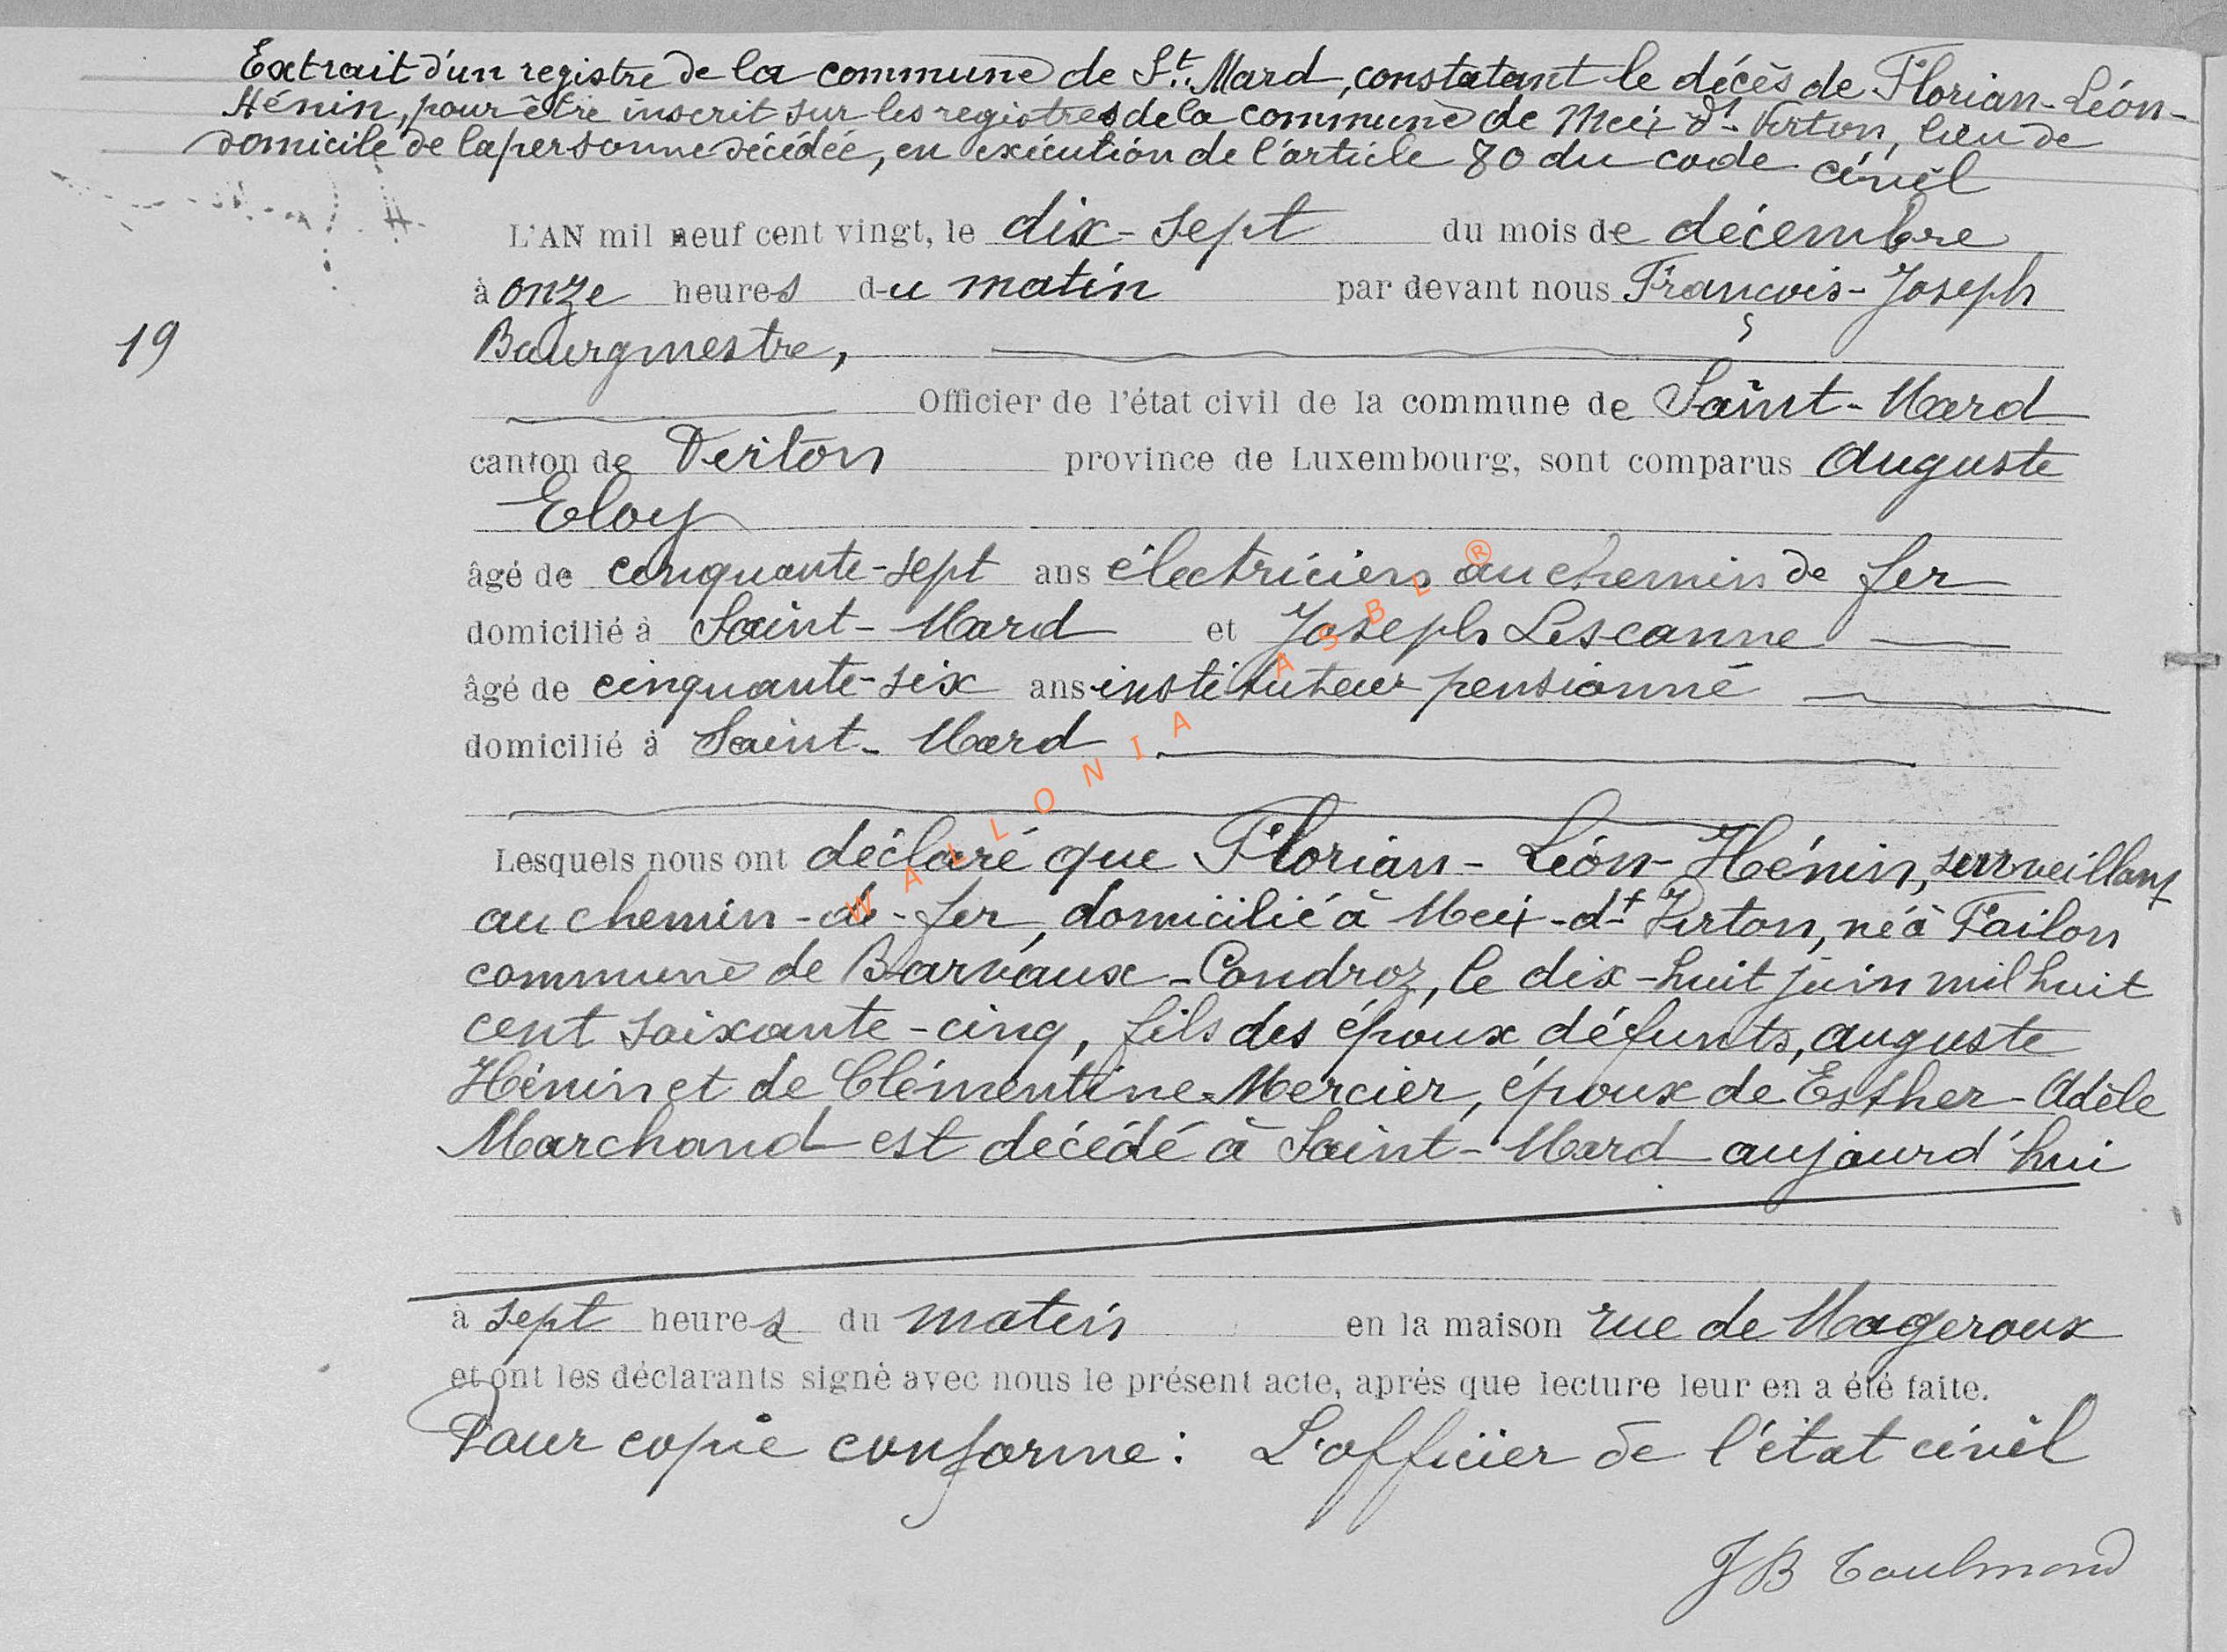 Extrait d'un registre de la commune de St. Mard, constatant le décès de Florian-Léon-
Hénin, pour être inscrit sur les registres de la commune de Meix-dt-Virton, lieu de
domicile de la personne décédée, en exécution de l'article 80 du code civil
L'AN mil neuf cent vingt, le dix-sept du mois de décembre
à onze heures du matin par devant nous François-Joseph
19
Bourgmestre,
Officier de l'état civil de la commune de Saint-Mard
canton de Virton province de Luxembourg, sont comparus Auguste
Eloy
âgé de cinquante-sept ans électricien au chemin de fer
domicilié à Saint-Mard et Joseph Lescanne
âgé de cinquante-six ans instituteur pensionné
domicilié à Saint-Mard
Lesquels nous ont déclaré que Florian-Léon-Hénin, surveillant
au chemin-de-fer, domicilié à Meix-dt Virton, né à Failon
commune de Barvaux-Condroz, le dix-huit juin mil huit
cent soixante-cinq, fils des époux défunts, Auguste
Hénin et de Clémentine Mercier, époux de Esther-Adèle
Marchand est décédé à Saint-Mard aujourd'hui
à sept heures du matin en la maison rue de Mageroux
et ont les déclarants signé avec nous le présent acte, après que lecture leur en a été faite.
Pour copie conforme: L'officier de l'état civil
JB Toulmond
WALLONIA ASBL ®